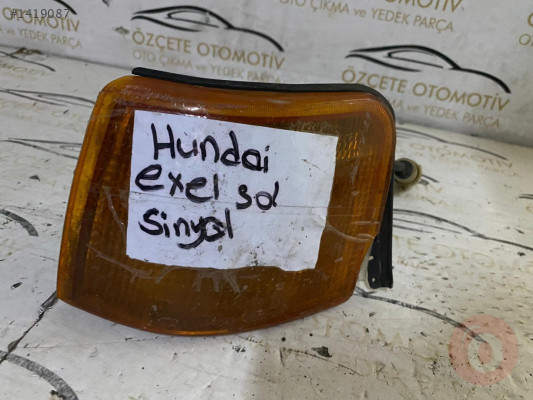 #1419087
ÖZÇETE OTOMOTİV
ÇIKMA VE YEDEK PARÇA
ÖZÇETE OTOMOTİV
ÇIKMA VE YEDEK PARÇA
ÖZÇETE OTOMOTİV
ÇIKMA VE YEDEK PARÇA
Hundai
exel sol
sinyal